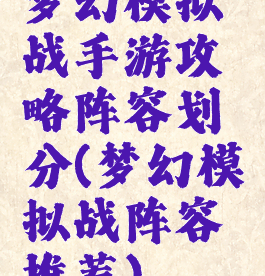 梦幻模拟
战手游攻
略阵容划
分(梦幻模
拟战阵容
推荐)